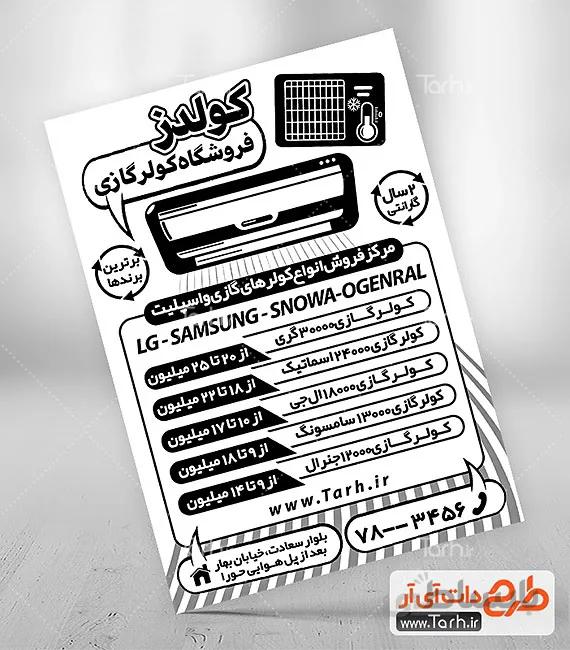 کولدز
فروشگاه کولر گازی
۲ سال
گارانتی
برترین
برندها
مرکز فروش انواع کولر های گازی و اسپلیت
LG - SAMSUNG - SNOWA-OGENRAL
کولر گازی ۳۰۰۰۰ گری
از ۲۰ تا ۲۵ میلیون
کولر گازی ۲۴۰۰۰ اسماتیک
از ۱۸ تا ۲۲ میلیون
کولر گازی ۱۸۰۰۰ ال جی
از ۱۰ تا ۱۷ میلیون
کولر گازی ۱۳۰۰۰ سامسونگ
از ۹ تا ۱۸ میلیون
کولر گازی ۱۲۰۰۰ جنرال
از ۹ تا ۱۴ میلیون
www.Tarh.ir
۷۸---۳۴۵۶
بلوار سعادت، خیابان بهار
بعد از پل هوایی حورا
Tarh.ir
طرح دات آی آر
www.Tarh.ir